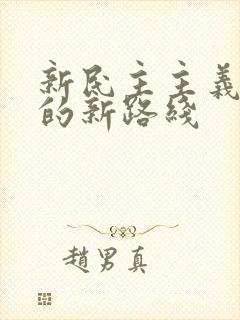 新民主主義
的新路綫
趙男真